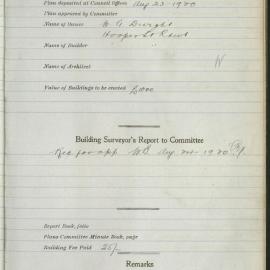 Plan deposited at Council Offices Aug 23 - 1920
Plan approved by Committee "
Name of Owner W. G. Dwight
Hooper St Rawd
Name of Builder "
Name of Architect
Value of Buildings to be erected £
Building Surveyor's Report to Committee
Rec for app Aug 1920
Report Book, folio
Plans Committee Minute Book, page
Building Fee Paid 25/-
Remarks